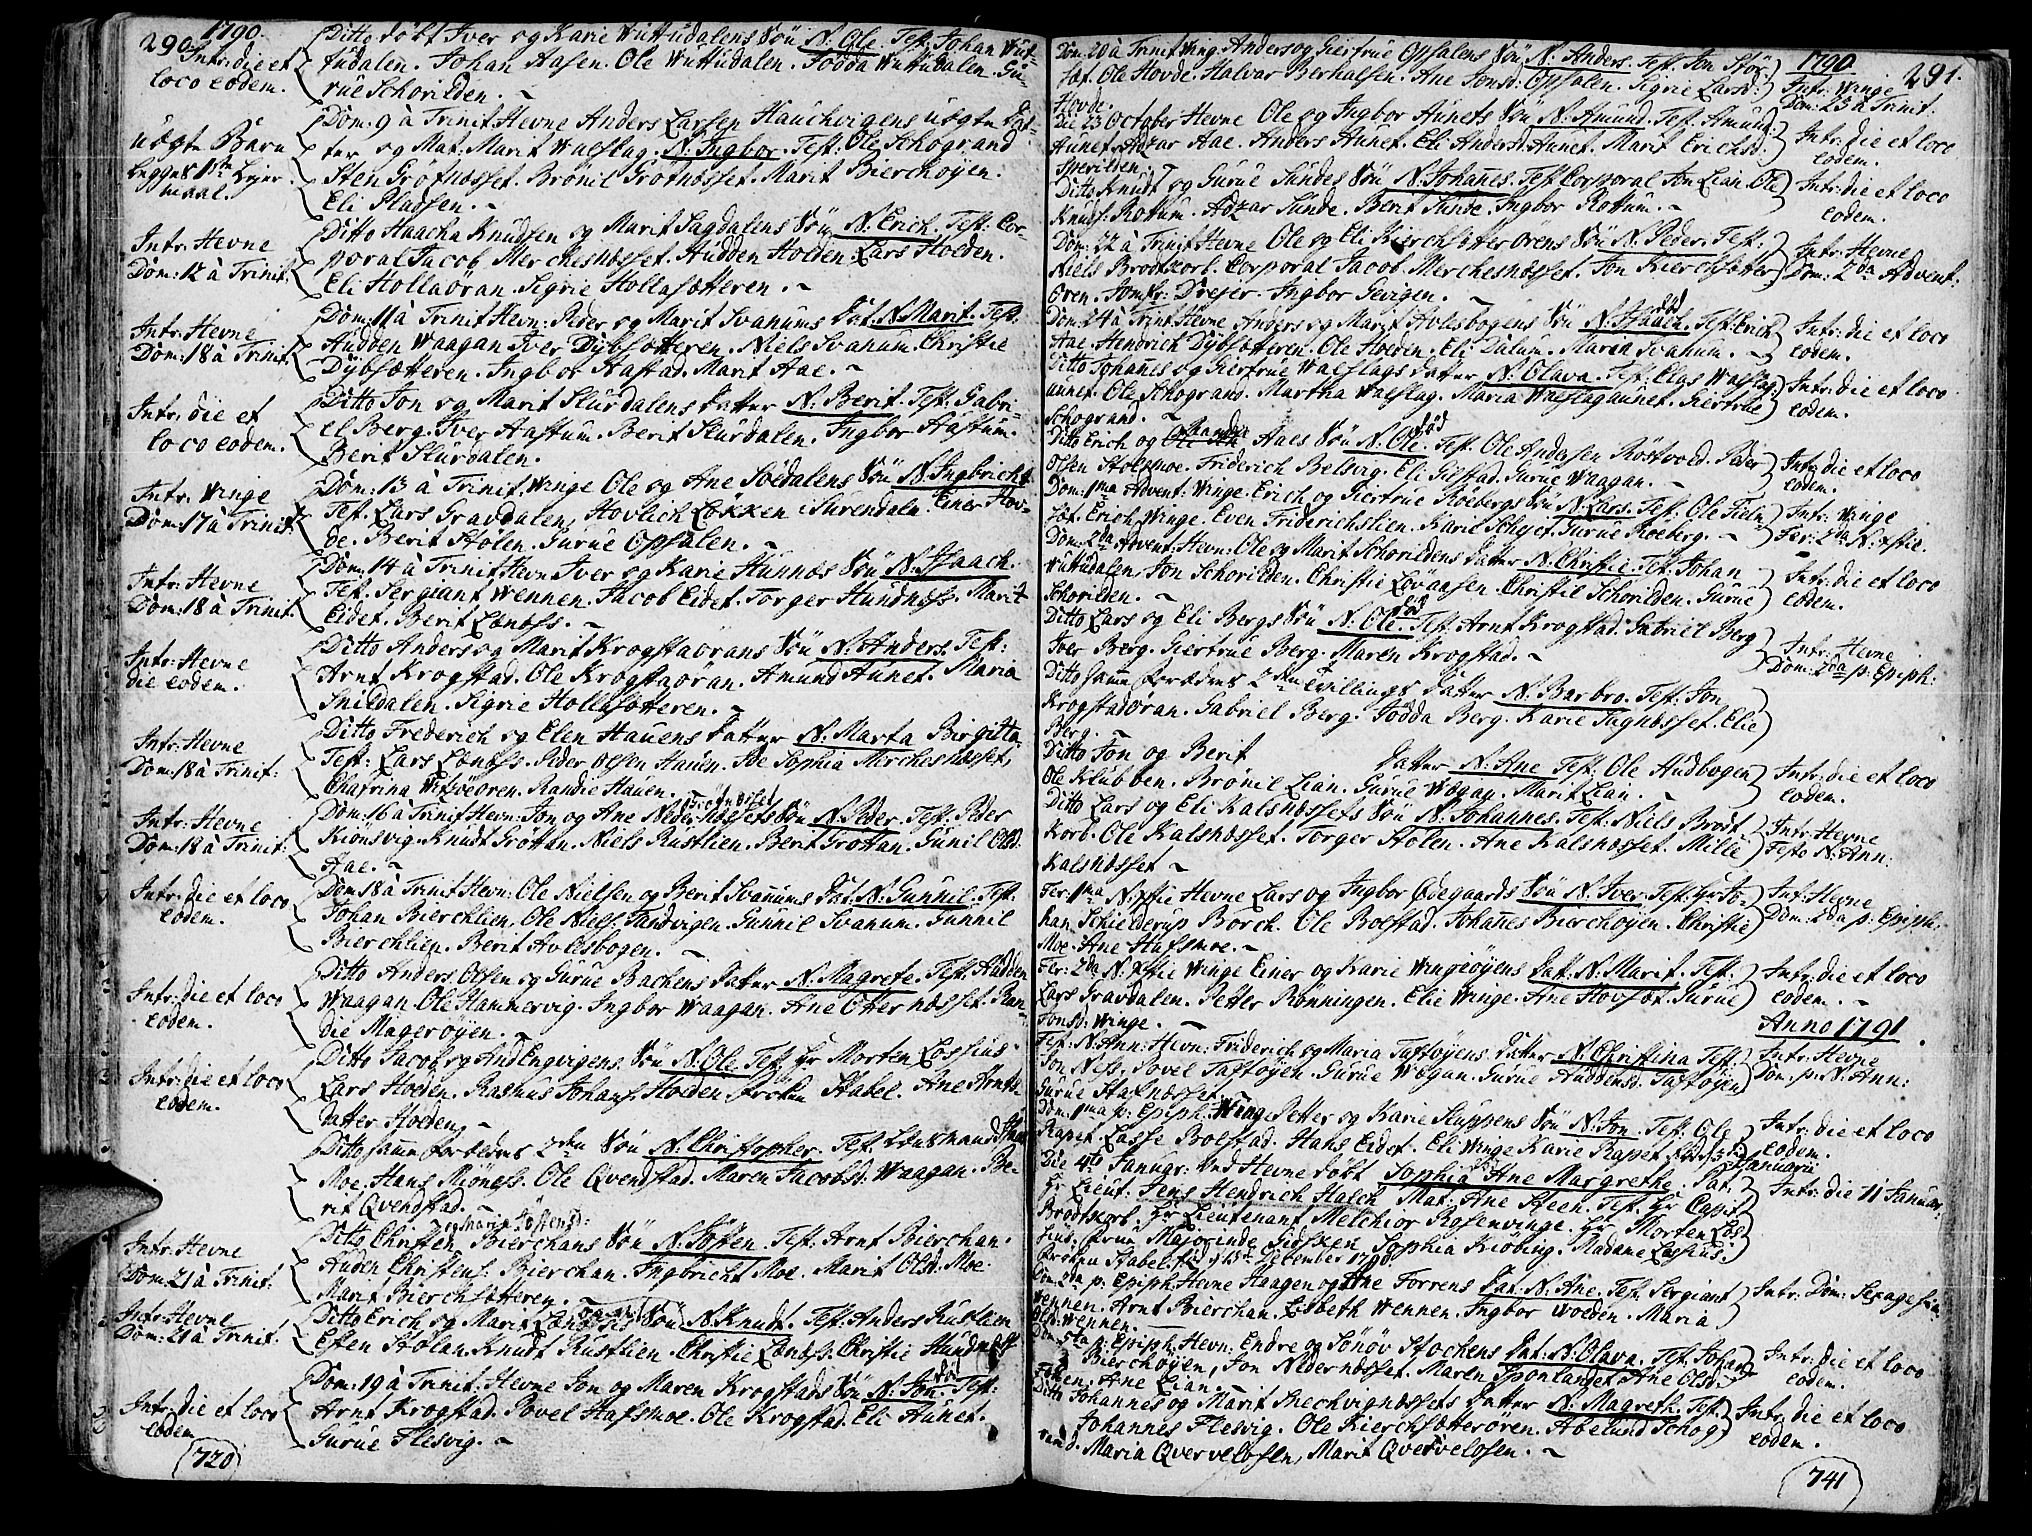 290. 1790.
Intr: die et
loco eodem.
Ditto döbt Iver og Karie Wuttudalens Sön N. Ole. Test: Johan Wut-
tudalen. Johan Aasen. Ole Wuttudalen. Jodda Wuttudalen. Gu-
rue Schorilden. ~
uægte Barn
begges 1ste Leier
maal.
Dom: 9 à Trinit: Hevne Anders Larsen Hauchvigens uægte Dat-
ter og Mat: Marit Waeslag. N. Ingbor. Test: Ole Schogrand
Sten Grötnæsset. Brönil Grötnæsset. Marit Bierchöyen.
Eli Pladsen. ~
Intr: Hevne
Dom: 12 à Trinit:
Ditto Haacha Knudsen og Marit Sagdalens Sön N. Erich. Test: Cor-
poral Jacob Merchesnæsset. Audden Holden. Lars Holden.
Eli Hollaöran. Sigrie Hollasætteren. ~
Intr: Hevne
Dom: 18 à Trinit.
Dom: 11 à Trinit: Hevn: Peder og Marit Svanums Dat: N. Marit. Test:
Audden Waagan Iver Dybsætteren. Niels Svanum. Christie
Dybsætteren. Ingbor Hastad. Marit Aae. ~
Intr: die et
loco eodem.
Ditto Jon og Marit Slurdalens Datter N. Berit. Test: Gabri-
el Berg. Iver Hastum. Berit Slurdalen. Ingbor Hastum.
Berit Slurdalen.
Intr: Winge
Dom: 17 à Trinit:
Dom: 13 à Trinit: Winge Ole og Ane Soedalens Sön N. Ingbricht
Test: Lars Gravdalen, Hovlich Løkken i Surendaln. Einer Hov-
de. Berit Stolen. Gurue Opsalen. ~
Intr: Hevne
Dom: 18 à Trinit.
Dom: 14 à Trinit: Hevn: Iver og Karie Hunnæs Sön N. Isaach.
Test. Sergiant Wennen. Jacob Eidet. Torger Hundnæss. Marit
Eidet. Berit Lænæss. ~
Intr: Hevne
die eodem.
Ditto Anders og Marit Krogstaörans Sön N. Anders. Test:
Arnt Krogstad. Ole Krogstaöran. Amund Aunet. Maria
Snildalen. Sigrie Hollasætteren. ~
Intr: Hevne
Dom: 18 à Trinit:
Ditto Frederich og Elen Hauens Datter N. Marta Birgitta.
Test: Lars Lænæss. Peder Olsen Hauen. Ide Sophia Merchesnæsset,
Chatrina Witsöeoren. Randie Hauen. ~
Intr: Hevne
Dom: 18 à Trinit:
Dom: 16 à Trinit Hevn: Jon og Ane Nedernæssets Sön N. Peder. Test: Peder
Kiönsvig. Knudt Gröttan. Niels Rustlien. Berit Grottan. Gunil Olsd:
Aae. ~
Intr: die et loco
eodem.
Dom: 18 à Trinit Hevn: Ole Nielsen og Berit Svanums Dat: N. Gunnil. Test:
Johan Bierchlien. Ole Niels: Sandvigen. Gunnil Svanum. Gunnil
Bierchlien. Berit Avlesbogen. ~
Intr: die et loco
eodem.
Ditto Anders Olsen og Gurue Bachens Datter N. Magrete. Test: Audden
Waagan. Ole Hammervig. Ingbor Waagan. Ane Otternæsset. Ran-
die Magerøyen. ~
Intr: die et loco
eodem.
Ditto Jacob og And Engvigens Sön N. Ole. Test: Hr Morten Lossius.
Lars Holden. Rasmus Johans: Holden. Frökn Stabel. Ane Arnts
Datter Holden. ~
Ditto samme Forældres 2den Sön N. Christopher. Test: Lensmand
Moe. Hans Miöness. Ole Qvendstad. Maren Jacobsd: Waagan. Be-
rit Qvendstad. ~
Intr: Hevne
Dom: 21 à Trinit.
og Maria Jostensd:
Ditto Christen Bierchans Sön N. Josten. Test: Arnt Bierchan.
Auden Christens: Bierchan. Ingbricht Moe. Marit Olsd: Moe.
Marit Bierchsætteren. ~
Intr: Hevne
Dom: 21 à Trinit.
Ditto Erich og Marit Sön N. Knudt. Test: Anders Rustlien
Esten Stolan. Knudt Rustlien. Christie Lænæss. Christie Hundnæss
Intr: die et loco
eodem
Dom: 19 à Trinit: Hevne Jon og Maren Krogstads Sön N. Jon. död Test:
Arnt Krogstad. Povel Hafsmoe. Ole Krogstad. Eli Aunet.
Gurue Flesvig. ~
720
1790. 291.
Dom: 20 à Trinit: Wing. Anders og Giertrue Opsalens Sön N. Anders. Test: Jon Stör-
sæt. Ole Hovde. Halvar Berhalsen. Ane Jonsd: Opsalen. Sigrie Larsd:
Hovde.
Intr: Winge
Dom: 23 à Trinit.
Die 23 October Hevne Ole og Ingbor Aunets Sön N. Amund. Test: Amund
Aunet. Adzar Aae. Anders Aunet. Eli Andersd: Aunet. Marit Erichsd:
Intr: die et loco
eodem.
Ditto Knudt og Gurue Sundes Sön N. Johanes. Test Corporal Jon Lian. Ole
Knuds: Rottum. Adzar Sunde. Berit Sunde. Ingbor Rottum. ~
Intr: die et loco
eodem.
Dom: 22 à Trinit Hevne Ole og Eli Kierchsætterörens Sön N. Peder. Test:
Niels Brodtkorb. Corporal Jacob Merchesnæsset. Jon Kierchsætter
Ören. Jomfr: Drejer. Ingbor Gevigen. ~
Intr: Hevne
Dom: 2da Advent.
Dom: 24 à Trinit Hevne Anders og Marit Avlesbogens Sön N. Isaach. död Test: Erich
Aae. Hendrich Dybsætteren. Ole Holden. Eli Dalum. Maria Svanum. ~
Intr: die et loco
eodem.
Ditto Johanes og Giertrue Waeslags Datter N. Olava. Test: Elas Waeslag-
aunet. Ole Schogrand. Martha Waeslag. Maria Waeslagaunet. Giertrue
Schogrand. ~
Intr: die et loco
eodem.
Ditto Erich og Aaes Sön N. Ole. död Test: Ole Andersen Röstvold. Peder
Olsen Stolsmoe. Friderich Belsvig. Eli Gilstad. Gurue Waagan. ~
Intr: die et loco
eodem.
Dom: 1ma Advent: Winge. Erich og Giertrue Koebergs Sön N. Lars. Test: Ole Fieln
sæt. Erich Winge. Even Friderichslien. Karit Schejet. Gurue Koeberg. ~
Intr: Winge
Fer: 2da N: Xstie.
Dom: 2da Advent: Hevn: Ole og Marit Schorildens Datter N. Christie. Test: Johan
Wuttudalen. Jon Schorilden. Christie Lovaasen. Christie Schorilden. Gurue
Schorilden. ~
Intr: die et loco
eodem.
Ditto Lars og Eli Bergs Sön N. Ole. död Test: Arnt Krogstad. Gabriel Berg
Iver Berg. Giertrue Berg. Maren Krogstad. ~
Intr: Hevne
Dom: 2da p: Epiph:
Ditto samme Forældres 2den Tvillings Datter N. Barbro. Test: Jon
Krogstadöran. Gabriel Berg. Jodda Berg. Karie Tagnæsset. Elie
Berg. ~
Ditto Jon og Berit Datter N. Ane Test: Ole Audbogen
Ole Klubben. Brönil Lian. Gurue Wogan. Marit Lian. ~
Intr: die et loco
eodem.
Ditto Lars og Eli Kalsnæssets Sön N. Johannes. Test: Niels Brodt-
korb. Ole Kalsnæsset. Torger Stolen. Ane Kalsnæsset. Mille
Kalsnæsset ~
Intr: Hevne
Festo N: Ann:
Fer: 1ma N: Xstie Hevne Lars og Ingbor Ødegaards Sön N. Iver. Test: Hr Jo-
han Schielderup Borch. Ole Bolstad. Johanes Bierchöyen. Christie
Moe. Ane Hafsmoe. ~
Intr: Hevne
Dom: 2da p: Epiph:
Fer: 2da N: Xstie Winge Einer og Karie Wingeöyens Dat. N. Marit. Test.
Lars Gravdalen. Petter Rönningen. Elie Winge. Ane Hovsæt. Gurue
Jonsd: Winge. ~
Intr: die et loco
eodem. ~
Anno 1791.
Fest: N: Ann: Hevn: Friderich og Maria Tastöyens Datter N. Christina Test:
Jon Ness. Povel Tastöyen. Gurue Wogan. Gurue Auddensd: Tastöyen
Gurue Stafnæsset. ~
Intr: Hevne
Dom: p: N: Ann:
Dom: 1ma p: Epiph: Wing. Petter og Karie Skuppens Sön N. Jon. Test: Ole
Rapet. Lasse Bolstad. Hans Eidet. Eli Winge Karie Rapet
Intr: die et loco
eodem.
Die 4to Januar: und Hevne döbt Sophia Ane Margrethe. Pat:
Hr Lieut: Jens Hendrich Halck Mat: Ane Steen. Test: Hr Capit:
Brodtkorb. Hr Lieutenant Melchior Rosenvinge. Hr Morten Los-
sius. Frue Majorinde Giesken. Sophia Kiöbing. Madame Lossius.
Fröken Stabel. fód d 15de December 1790.
Intr: die 11 Januar.
Dom: 2da p: Epiph: Hevne Haagen og Ane Forrens Dat. N. Ane. Test. Sergiant
Wennen. Arnt Bierchan. Lisbeth Wennen. Ingbor Woeden. Maria
Wennen. ~
Intr: Dom: Sexagesim:
Dom: 5ta p: Epiph: Hevn: Endre og Sönöv Stochens Dat: N. Olava. Test: Johan
Bierchöyen, Jon Nedernæsset. Maren Sponlandet. Ane Olsd:
Foken. Ane Lian. ~
Intr: die et loco
eodem.
Ditto Johannes og Marit Snechvignæssets Datter N. Magreth. Test:
Johannes Flesvig. Ole Kierchsætterören. Abelund Schog-
rand. Maria Qvervelosen, Marit Qvervelosen. ~
Intr: die et loco
eodem.
741